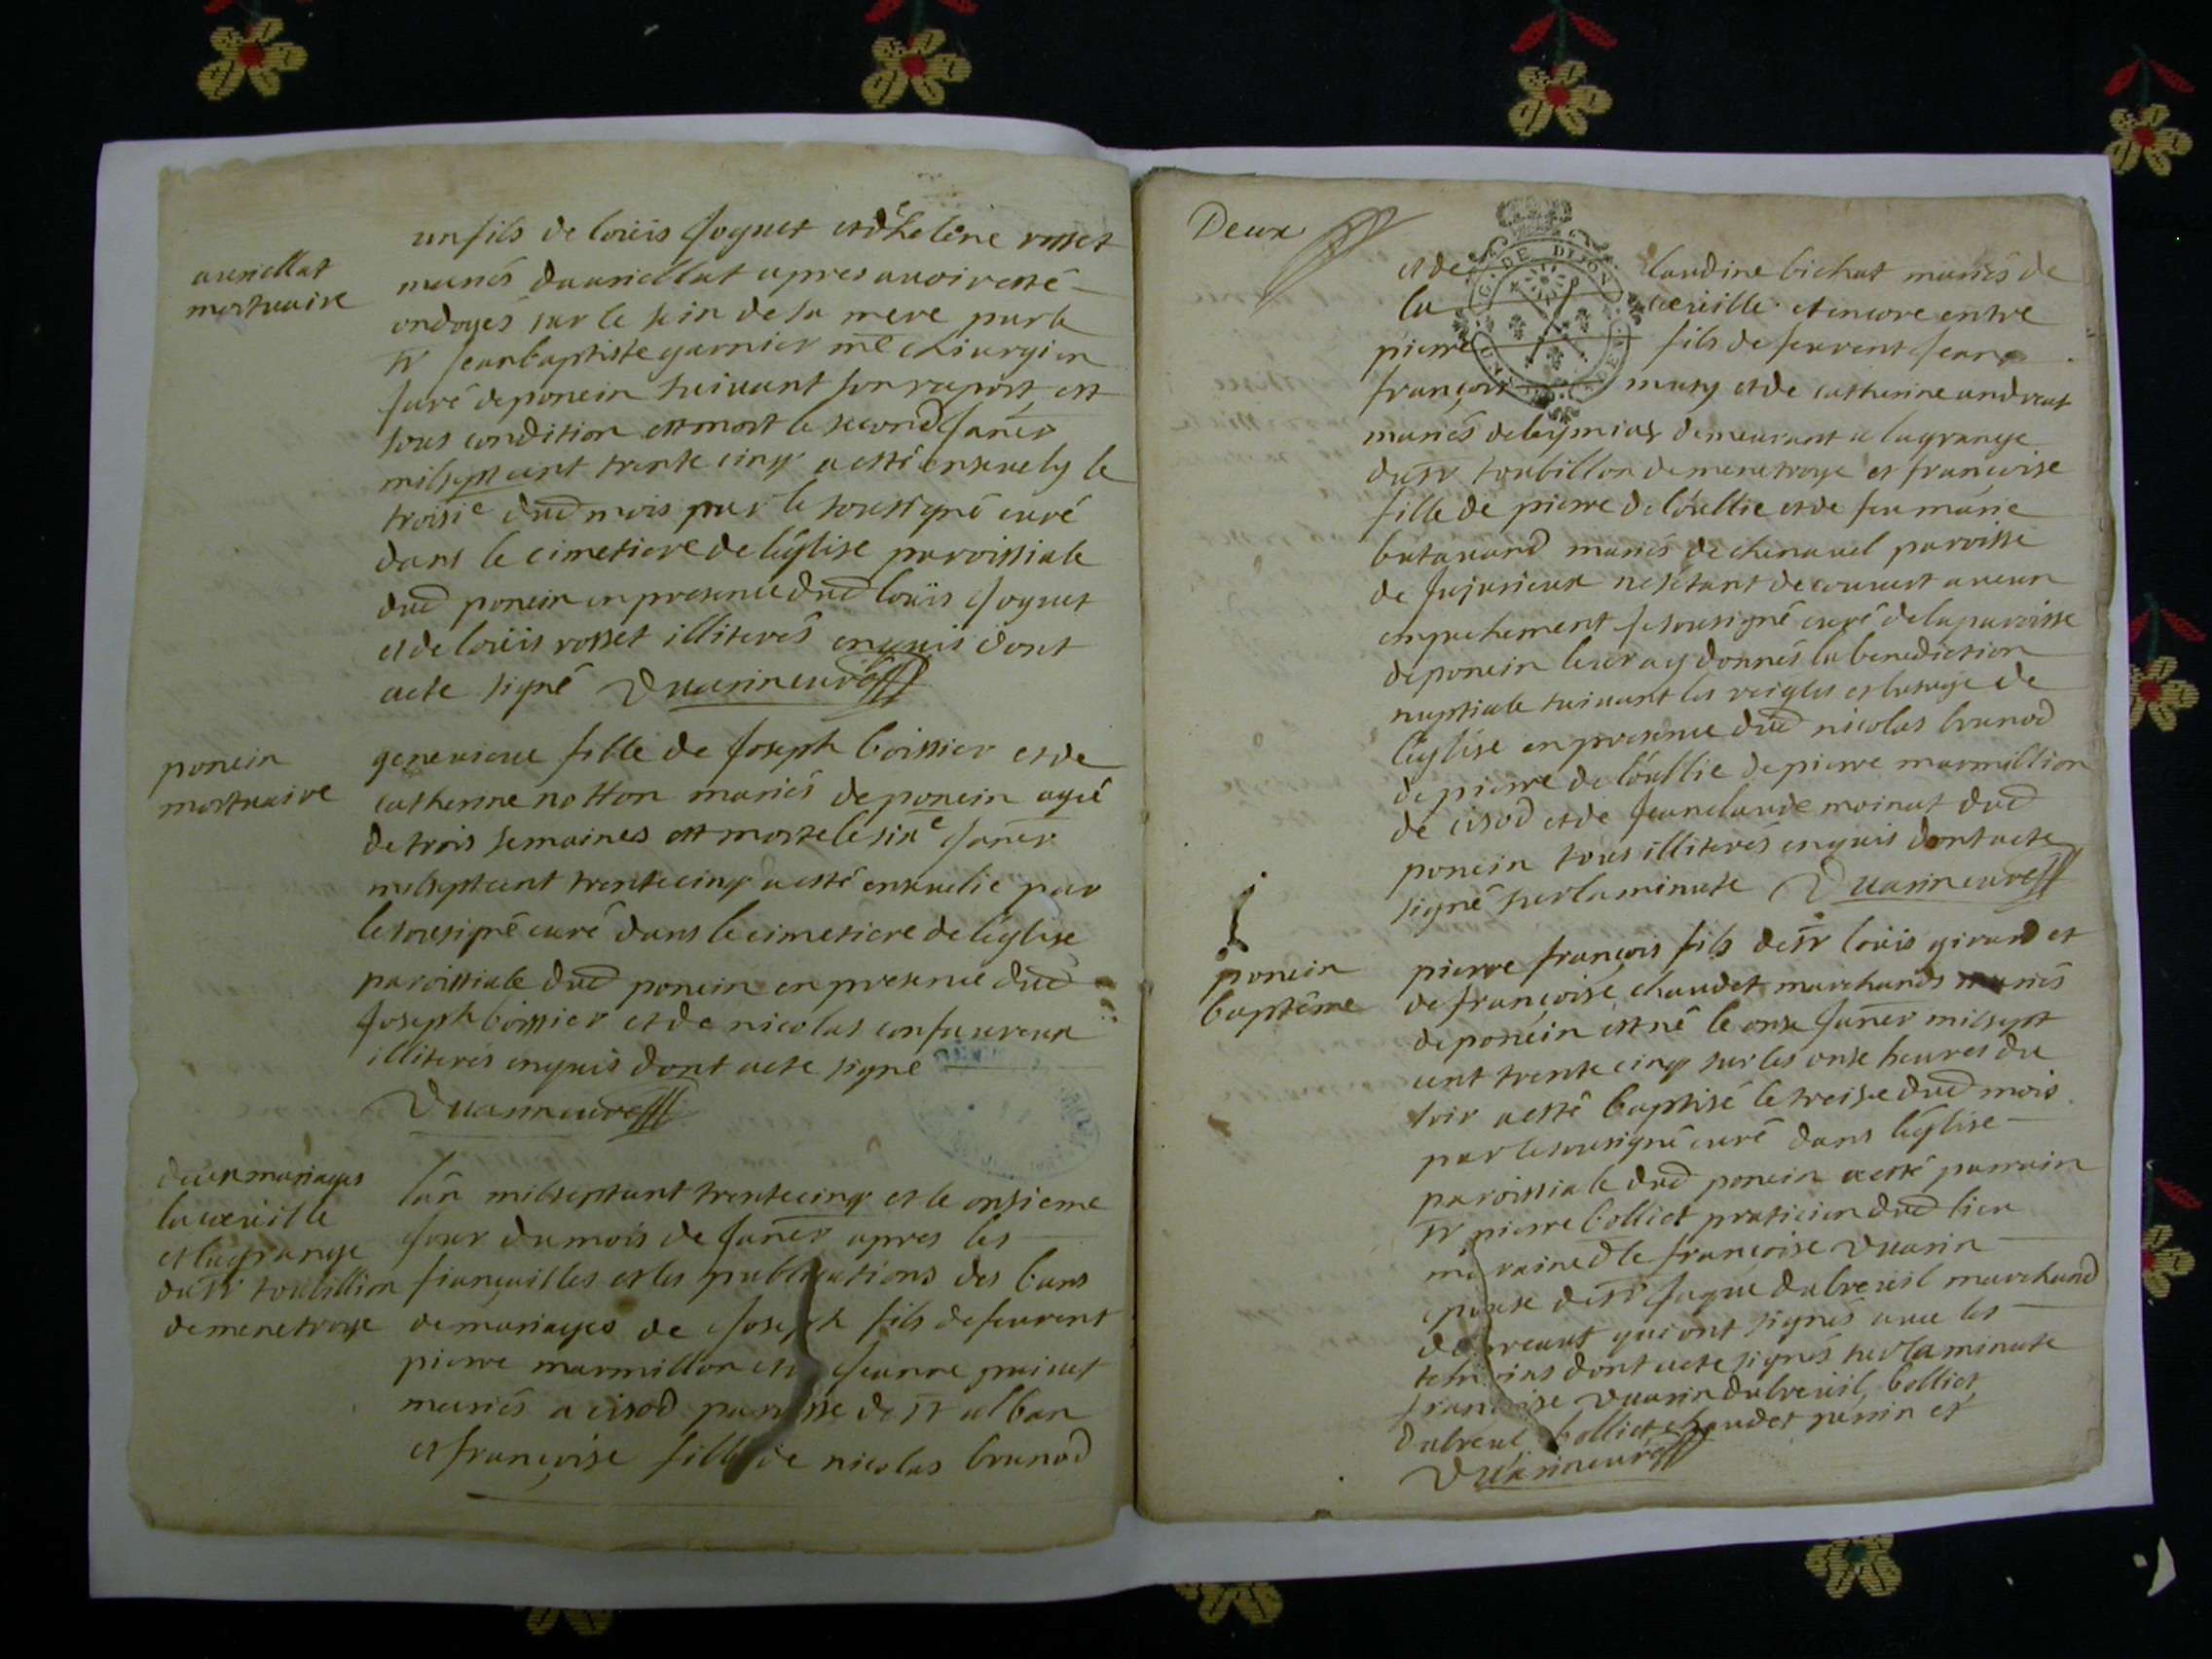 auriellat
mortuaire
un fils de loüis Joguet et d'helêne rosset
mariés d'auriellat apres avoir esté
ondoyés sur le sein de sa mere par le
Sr Jeanbaptiste garnier me chiurgien
Juré de poncin suivant son raport est
sous condition est mort le second Janer
milsept cent trente cinq a esté ensevely le
troisie dud mois par le soussigné curé
dans le cimetiere de léglise paroissiale
dud poncin en presence dud loüis Joguet
et de loüis rosset illiterés enquis dont
acte signé Duarin curé
poncin
mortuaire
genevieve fille de Joseph boissier et de
catherine notton mariés de poncin agée
de trois semaines est morte le sixe Janer
milseptcent trente cinq a esté ensevelie par
le sousigné curé dans le cimetiere de léglise
paroissiale dud poncin en presence dud
Joseph boissier et de nicolas confavreux
illiterés enquis dont acte signé
Duarin curé
deux mariages
la cueille
et la grange
du Sr toubillion
de menetroye
lân milseptcent trente cinq et le onsieme
Jour du mois de Janer apres les
fiançailles et les publications des bans
de mariages de Joseph fils de feurent
pierre marmillon et Jeanne
mariés a cisod paroisse de St alban
et françoise fille de nicolas brunod
Deux
G. DE DIJON
et de claudine bichat mariés de
la cueille et encore entre
pierre fils de feurent Jean
françois mary et de catherine andreat
mariés de leymias demeurant a la grange
du Sr toubillon de menetroye et françoise
fille de pierre deloüllie et de feu marie
batavard mariés de chenavel paroisse
de Jujurieux ne sétant decouvert aucun
empechement Je sousigné curé de la paroisse
de poncin leur ay donnés la benediction
nuptiale suivant les reigles et lusage de
léglise en presence dud nicolas brunod
de pierre deloüllie de pierre marmillion
de cisod et de Jeanclaude moinat dud
poncin tous illiterés enquis dont acte
signé sur la minute Duarin curé
poncin
baptême
pierre françois fils de Sr loüis girard et
de françoise chaudet marchands mariés
de poncin est né le onse Janer milsept
cent trente cinq sur les onse heures du
soir a esté baptisé le treise dud mois
par le sousigné curé dans léglise
paroissiale dud poncin a esté parrain
Sr pierre bolliet praticien dud lieu
maraine dlle françoise Duarin
epouse de Sr Jaque dubreüil marchand
qui ont signés avec les
temoins dont acte signés sur la minute
françoise Duarin dubreüil, bolliet,
Dubreul bolliet chaudet perrin et
Duarin curé